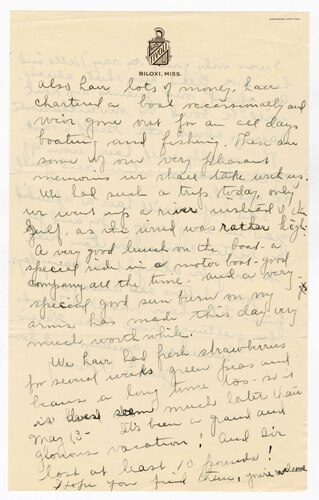 BILOXI, MISS.
also have lots of money, have
chartered a boat occassionally and
we've gone out for an all days
boating and fishing. These are
some of our very pleasant
memories we shall take with us.
We had such a trip today, only
we went up a river instead of the
Gulf, as the wind was rather high.
A very good lunch on the boat - a
special ride in a motor boat - good
company all the time - and a very
special good sun burn on my
arms has made this day very
much worth while.
We have had fresh strawberries
for several weeks green peas and
beans a long time too - so it
is does seem much later than
May 13 - It's been a grand and
glorious vacation! And I've
lost at least 10 pounds!
Hope you find them, you're welcome